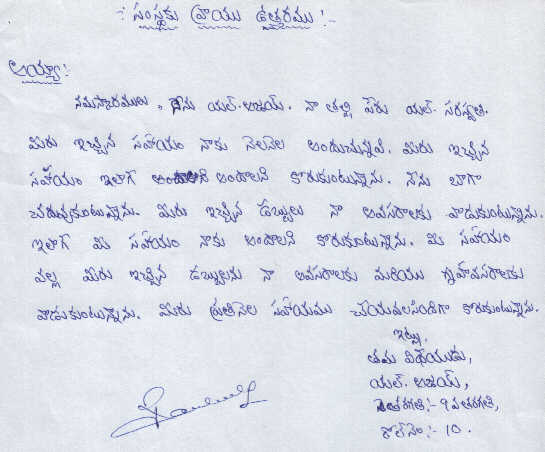 :- సంస్థకు వ్రాయు ఉత్తరము :-
అయ్యా :
నమస్కారములు, నేను యల్. అజయ్. నా తల్లి పేరు యల్. సరస్వతి.
మీరు ఇచ్చిన సహాయం నాకు నెలనెల అందుచున్నవి. మీరు ఇచ్చిన
సహాయం ఇలాగే అందాలని కోరుకుంటున్నాను. నేను బాగా
చదువుకుంటున్నాను. మీరు ఇచ్చిన డబ్బులు నా అవసరాలకు వాడుకుంటున్నాను.
ఇలాగే మీ సహాయం నాకు అందాలని కోరుకుంటున్నాను. మీ సహాయం
వల్ల మీరు ఇచ్చిన డబ్బులను నా అవసరాలకు మరియు గృహావసరాలకు
వాడుకుంటున్నాను. మీరు ప్రతినెల సహాయము చేయవలసిందిగా కోరుకుంటున్నాను.
ఇట్లు,
తమ విధేయుడు,
యల్. అజయ్,
తరగతి :- 9వ తరగతి,
రోల్ నెం :- 10.